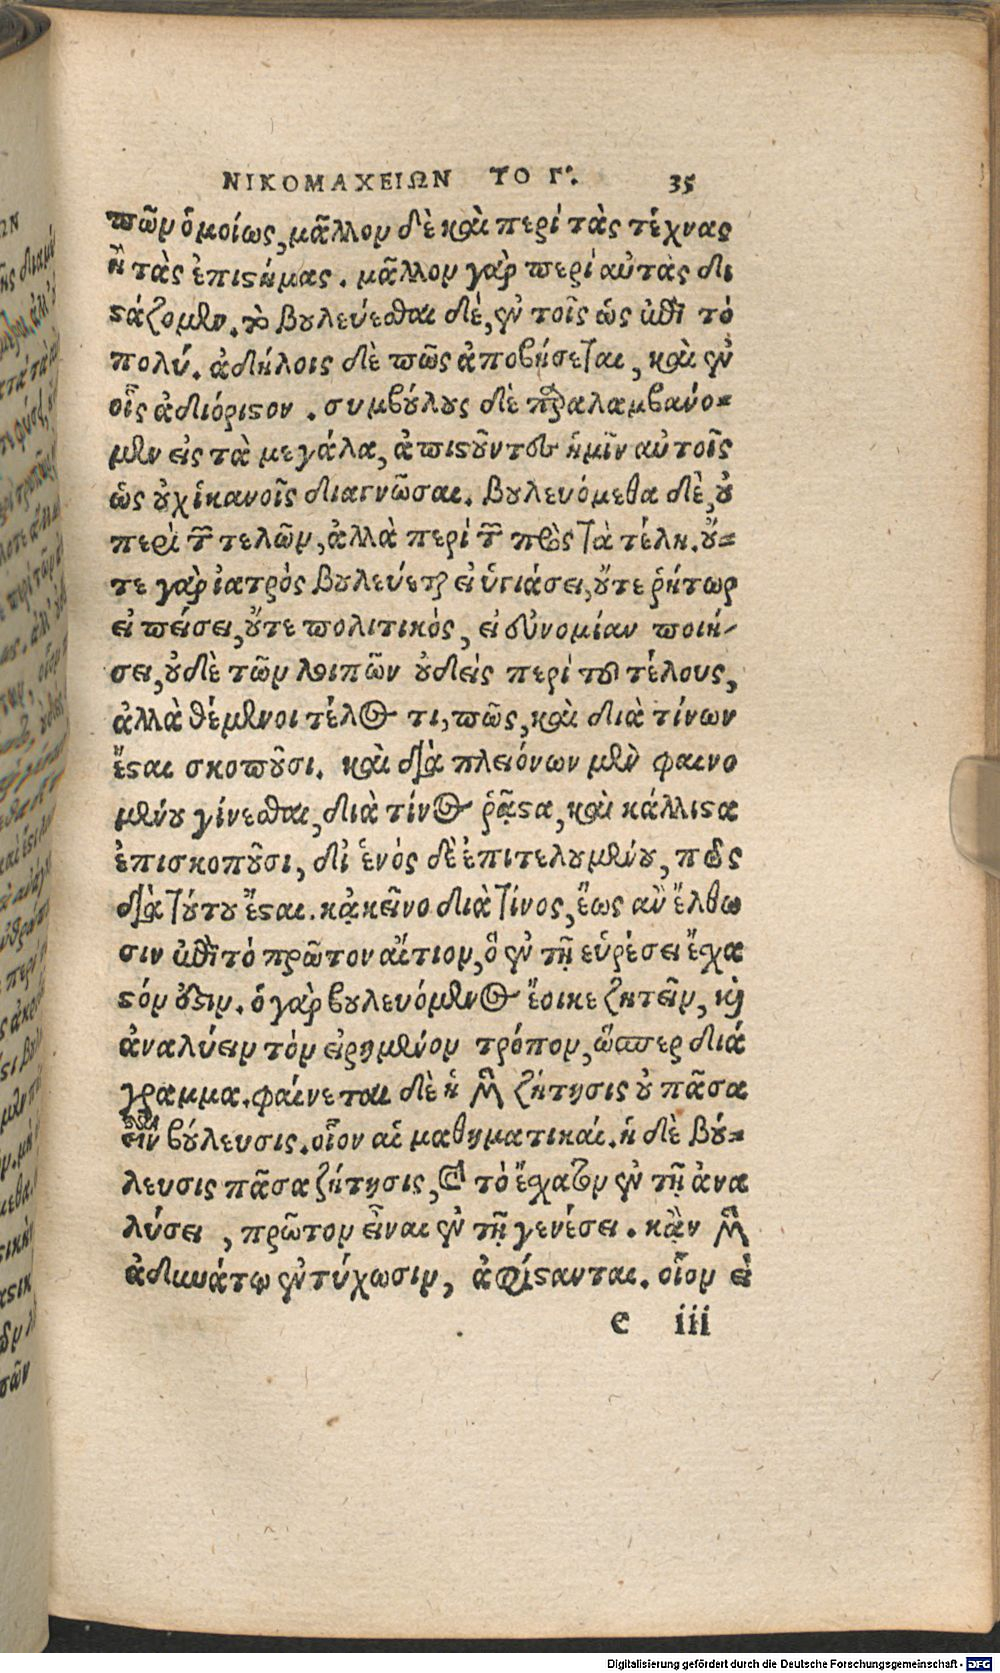 ΝΙΚΟΜΑΧΕΙΩΝ ΤΟ Γ. 35
πῶν ὁμοίως, μᾶλλον δὲ καὶ περὶ τὰς τέχνας
ἢ τὰς ἐπιϛήμας. μᾶλλον γὰρ περὶ αὐτὰς δι
ϛάζομεν. τὸ βουλεύεσθαι δέ, ἐν τοῖς ὡς ἐπὶ τό
πολύ. ἀδήλοις δὲ πῶς ἀποβήσεται, καὶ ἐν
οἷς ἀδιόριϛον. συμβούλους δὲ παραλαμβανό-
μεν εἰς τὰ μεγάλα, ἀπιϛοῦντες ἡμῖν αὐτοῖς
ὡς οὐχ ἱκανοῖς διαγνῶσαι. βουλευόμεθα δὲ, οὐ
περὶ τῶν τελῶν, ἀλλὰ περὶ τῶν πρὸς τὰ τέλη. οὔ-
τε γὰρ ἰατρὸς βουλεύεται εἰ ὑγιάσει, οὔτε ῥήτωρ
εἰ πείσει, οὔτε πολιτικός, εἰ εὐνομίαν ποιή-
σει, οὐδὲ τῶν λοιπῶν οὐδεὶς περὶ τοῦ τέλους,
ἀλλὰ θέμενοι τέλος τι, πῶς, καὶ διὰ τίνων
ἔϛαι σκοποῦσι. καὶ διὰ πλειόνων μὲν φαινο
μένου γίνεσθαι, διὰ τίνος ῥᾷϛα, καὶ κάλλιϛα
ἐπισκοποῦσι, δι' ἑνός δὲ ἐπιτελουμένου, πῶς
διὰ τούτου ἔϛαι. κᾀκεῖνο διὰ τίνος, ἕως ἂν ἔλθω
σιν ἐπὶ τό πρῶτον αἴτιον, ὅ ἐν τῇ εὑρέσει ἔχα
ϛόν ἐϛιν. ὁ γὰρ βουλευόμενος ἔοικε ζητεῖν, καὶ
ἀναλύειν τὸν εἰρημένον τρόπον, ὥσπερ διά
γραμμα. φαίνεται δὲ ἡ μὲν ζήτησις οὐ πᾶσα
εἶναι βούλευσις. οἷον αἱ μαθηματικαί. ἡ δὲ βού-
λευσις πᾶσα ζήτησις, καὶ τὸ ἔχατον ἐν τῇ ἀνα
λύσει, πρῶτον εἶναι ἐν τῇ γενέσει. κἂν μὲν
ἀδυνάτῳ ἐντύχωσιν, ἀφίϛανται. οἷον εἰ
e iii
Digitalisierung gefördert durch die Deutsche Forschungsgemeinschaft - DFG